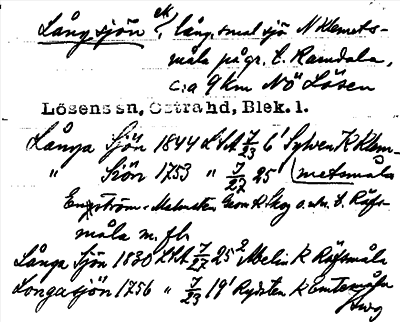 Långsjön ek, långsmal sjö N Klemets-
måla på gr. t. Ramdala,
c:a 9 km NÖ Lösen
Lösens sn, Östra hd, Blek. l.
Långa Sjön 1844 LSA J/23 6¹ Sylven K Klem-
" Siön 1753 " J/27 25¹ metsmåla
Engström, Malmsten Geom K Skog o. utm. t. Räfs-
måla m. fl.
Långa Sjön 1830 LSA J/27 25² Melin K Räfsmåla
Longa sjön 1756 " J/23 19¹ Rydsten K Emtemåla